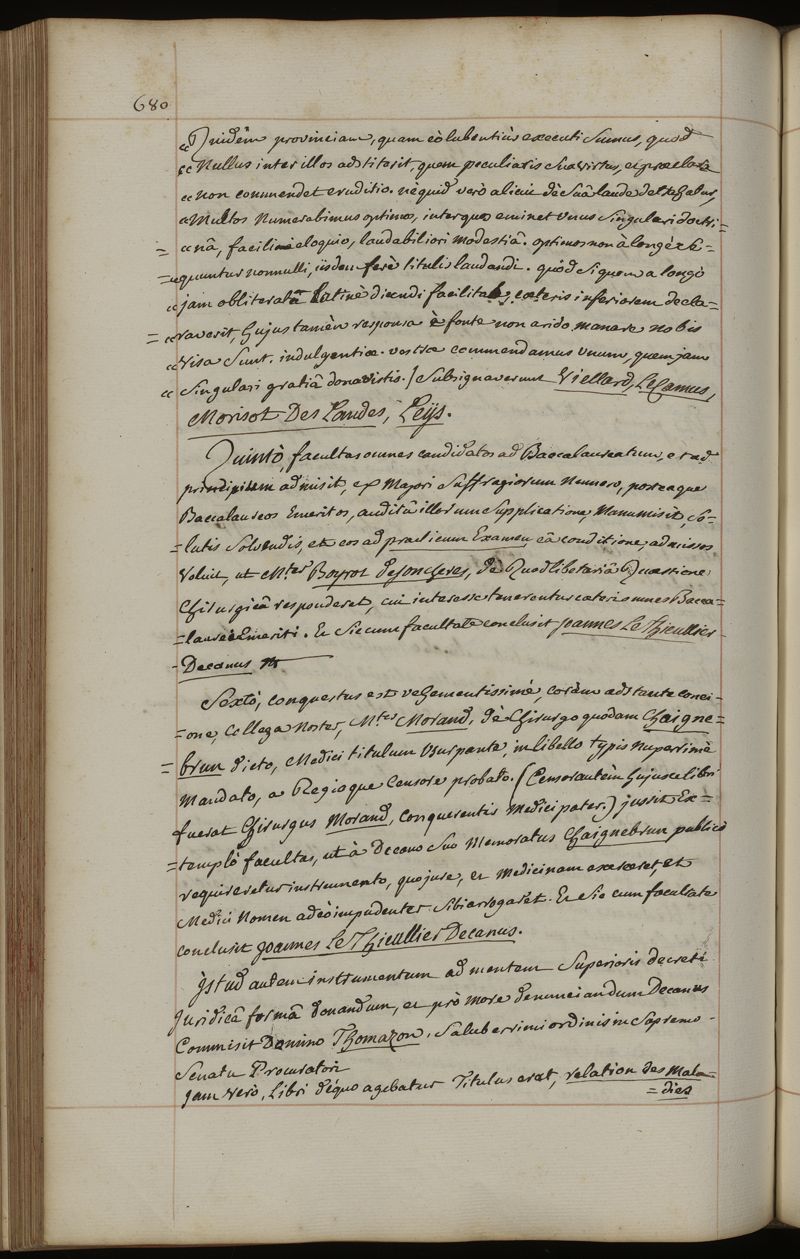 680
« Quidem provinciam, quam eò lubentiùs executi Sumus, quod
« Nullus inter illos adstiterit, quem peculiaris Sua virtus, et præclara
« non commendet eruditio. nè quid verò alicui de Suâ laude detrahatur,
« Multos numerabimus optimos, inter quos eminet unus Singulari doctri=
= « nâ, facilimo eloquio, laudabiliori modestiâ. optimos non à longè se=
= « quuntur nonnulli, iisdem ferè titulis laudandi. quòd Si quem a longò
« jam obliterata Latinè dicendi facilitas, cæteris inferiorem decla=
= « raverit, hujus tamèn responsa è fonte non arido manare nobis
« Visa Sunt. indulgentiæ vestræ commendamus unum, quem jam
« Singulari gratiâ donavistis. / Subsignaverunt Viellard, Le Camus,
Morisot Des Landes, Leijs.
Quintò, facultas omnes candidatos ad Baccalaureatum, et ad
principium admisit, ex Majori Suffragiorum Numero, posteaque
Baccalaureos Emeritos, auditâ illorum Supplicatione, Manumisit, So=
= lutis Solvendis, et eos ad practicum Examen eâ conditione, admissos
Voluit, ut Mter Boyrot Desjoncheres, de Quodlibetariâ Quæstione
Chirurgicâ responderet, cui interesse tenerentur cæteri omnes Bacca=
= laurei Emeriti. Et Sic cum facultate conclusit joannes Le Thieullier
- Decanus
Sextò, conquestus est vehementissimè, coràm adstante conci-
= one, Collega Noster, Mter Morand, de Chirurgo quodam Chaigne=
= brun dicto, Medici titulum Usurpante, in libello typis nuperrimè
Mandato, a Regioque Censore probato. (Censor autèm hujusce libri
fuerat Chirurgus Morand, conquerentis Medici pater.) jussit Ex=
= templò facultas, ut à Decano Suo Memoratus Chaignebrun publico
requireretur instrumento, quo jure, et Medicinam exerceret, et
Medici Nomen adeò impudenter Sibi arrogaret. Et Sic cum facultate
conclusit joannes Le Thieullier Decanus.
jstud autem instrumentum ad mentem Superioris decreti
juridicâ formâ donandum, et prò more denunciandum Decanus
Commisit Domino Thomazon, Saluberrimi ordinis in Supremo
Senatu Procuratori
jam verò, Libri de quo agebatur Titulus erat, relation des Mala=
= dies